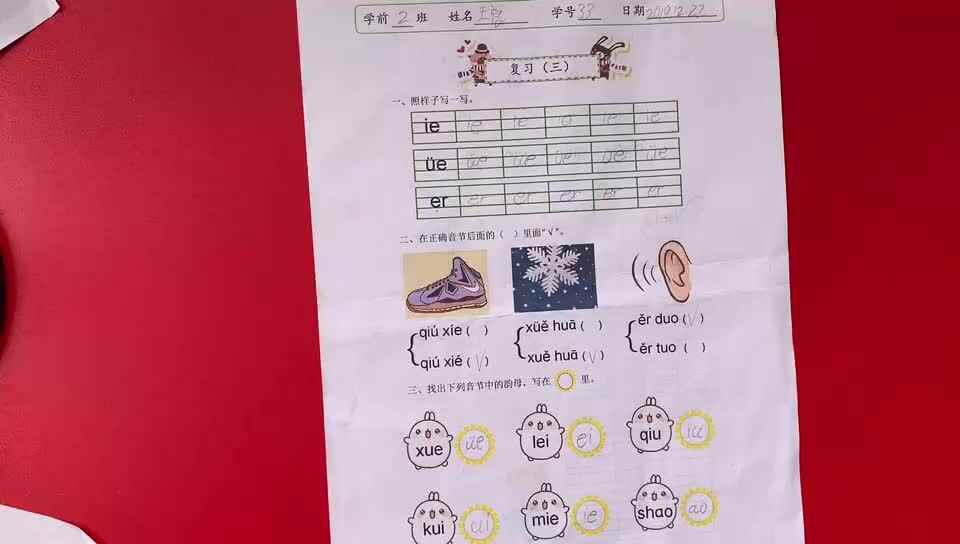 学前 2 班 姓名 学号 33 日期 2019.12.23
复习（三）
一、照样子写一写。
ie ie ie ie ie ie
üe üe üe üe üe üe
er er er er er er
二、在正确音节后面的（ ）里画"√"。
qiú xíe（ ） xüě huā（ ） ěr duo（√）
qiú xié（√） xuě huā（√） ěr tuo（ ）
三、找出下列音节中的韵母，写在 里。
xue üe lei ei qiu iu
kui ui mie ie shao ao